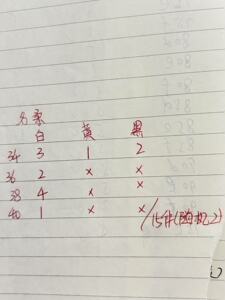 名柔
白 黄 黑
34 3 1 2
36 2 × ×
38 4 × ×
40 1 × × /15件(胸机2)